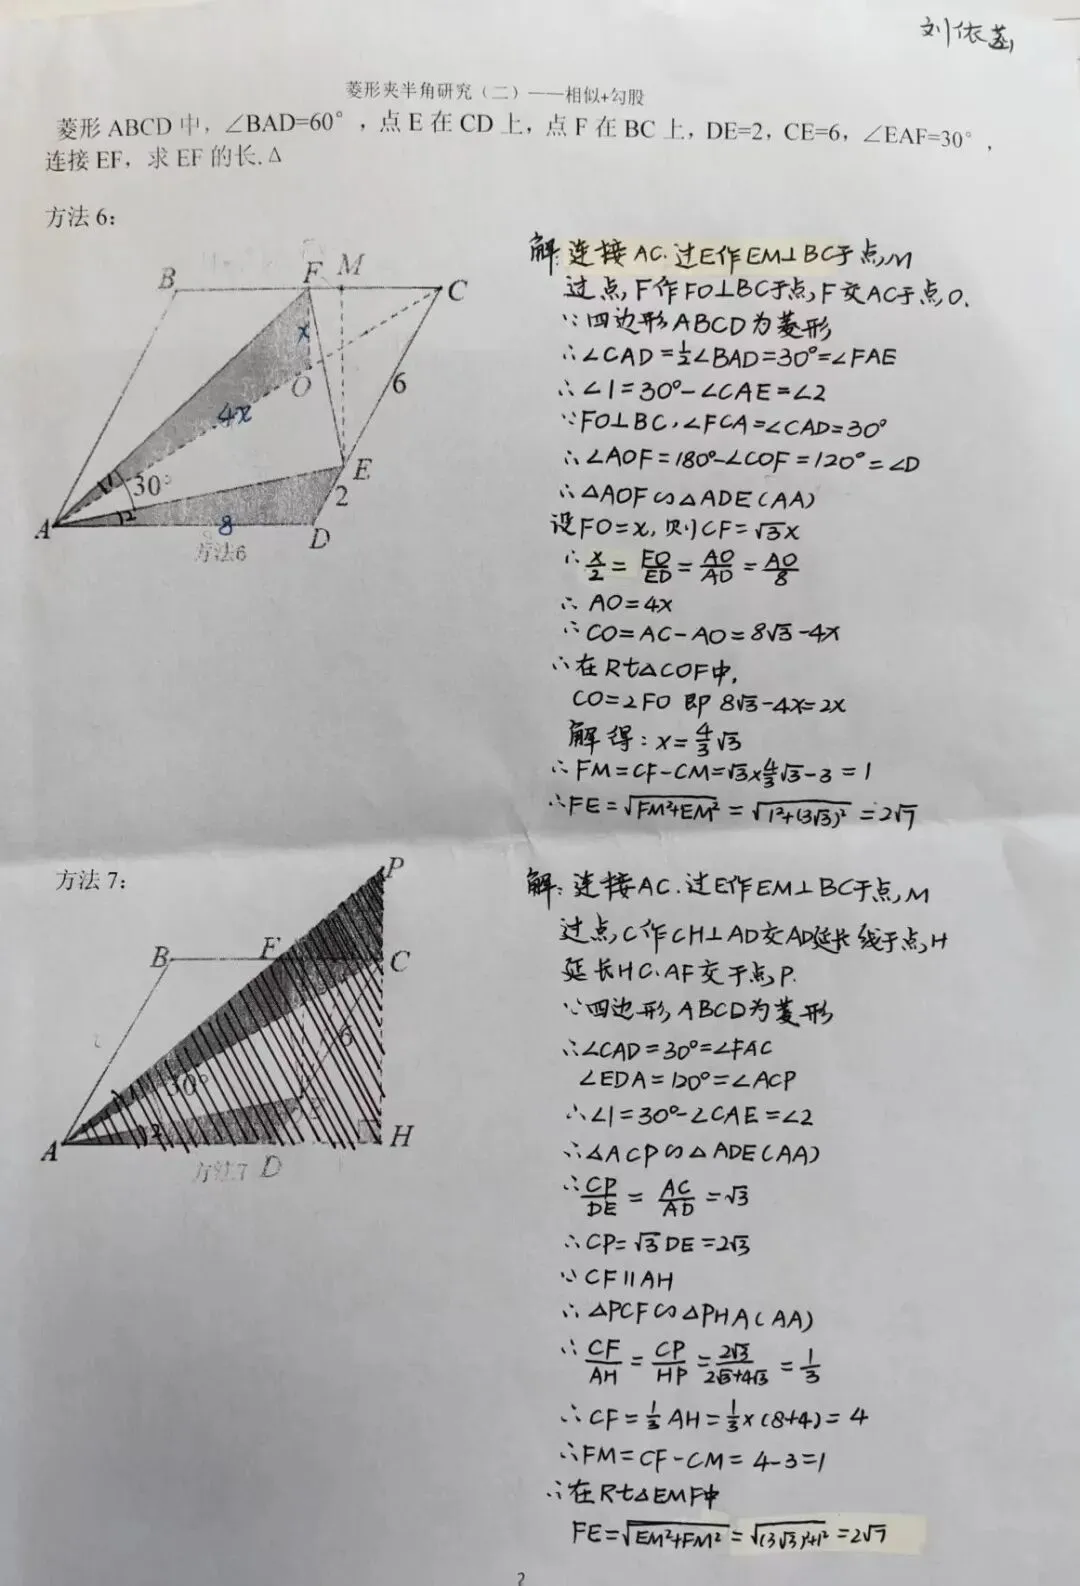 刘依
菱形夹半角研究（二）——相似+勾股
菱形 ABCD 中，∠BAD=60°，点 E 在 CD 上，点 F 在 BC 上，DE=2，CE=6，∠EAF=30°，
连接 EF，求 EF 的长.Δ
方法 6：
B F M C
x
O
4x
6
1
30°
E
2
2
A 8 D
方法6
解:连接AC.过E作EM⊥BC于点M
过点F作FO⊥BC于点F交AC于点O.
∵四边形ABCD为菱形
∴∠CAD=½∠BAD=30°=∠FAE
∴∠1=30°-∠CAE=∠2
∵FO⊥BC,∠FCA=∠CAD=30°
∴∠AOF=180°-∠COF=120°=∠D
∴△AOF∽△ADE(AA)
设FO=x,则CF=√3x
∴x/2=FO/ED=AO/AD=AO/8
∴AO=4x
∴CO=AC-AO=8√3-4x
∴在Rt△COF中,
CO=2FO 即 8√3-4x=2x
解得:x=4/3√3
∴FM=CF-CM=√3×4/3√3-3=1
∴FE=√(FM²+EM²)=√(1²+(3√3)²)=2√7
方法 7：
P
B F C
6
30°
2
A D H
方法7
解:连接AC.过E作EM⊥BC于点M
过点C作CH⊥AD交AD延长线于点H
延长HC.AF交于点P.
∵四边形ABCD为菱形
∴∠CAD=30°=∠FAC
∠EDA=120°=∠ACP
∴∠1=30°-∠CAE=∠2
∴△ACP∽△ADE(AA)
∴CP/DE=AC/AD=√3
∴CP=√3DE=2√3
∵CF∥AH
∴△PCF∽△PHA(AA)
∴CF/AH=CP/HP=2√3/(2√3+4√3)=1/3
∴CF=1/3AH=1/3×(8+4)=4
∴FM=CF-CM=4-3=1
∴在Rt△EMF中
FE=√(EM²+FM²)=√((3√3)²+1²)=2√7
2